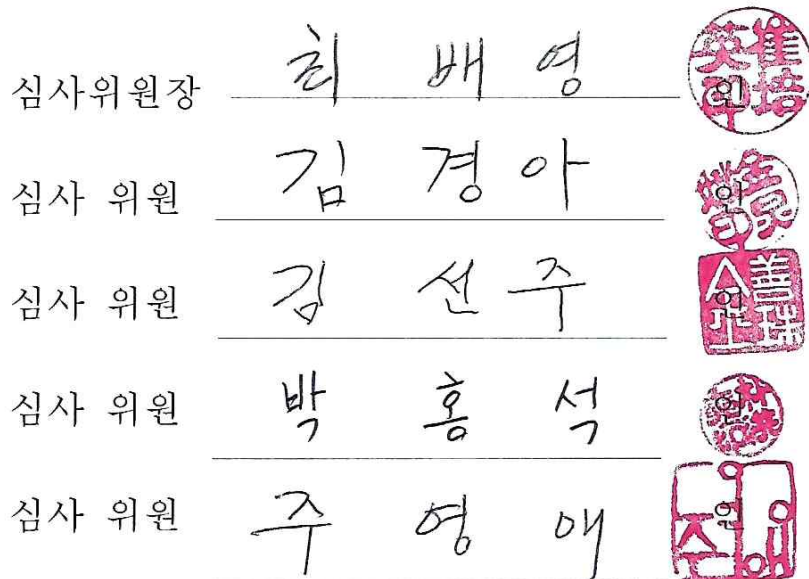 심사위원장 최 배 영 인
심사 위원 김 경 아 인
심사 위원 김 선 주 인
심사 위원 박 홍 석 인
심사 위원 주 영 애 인